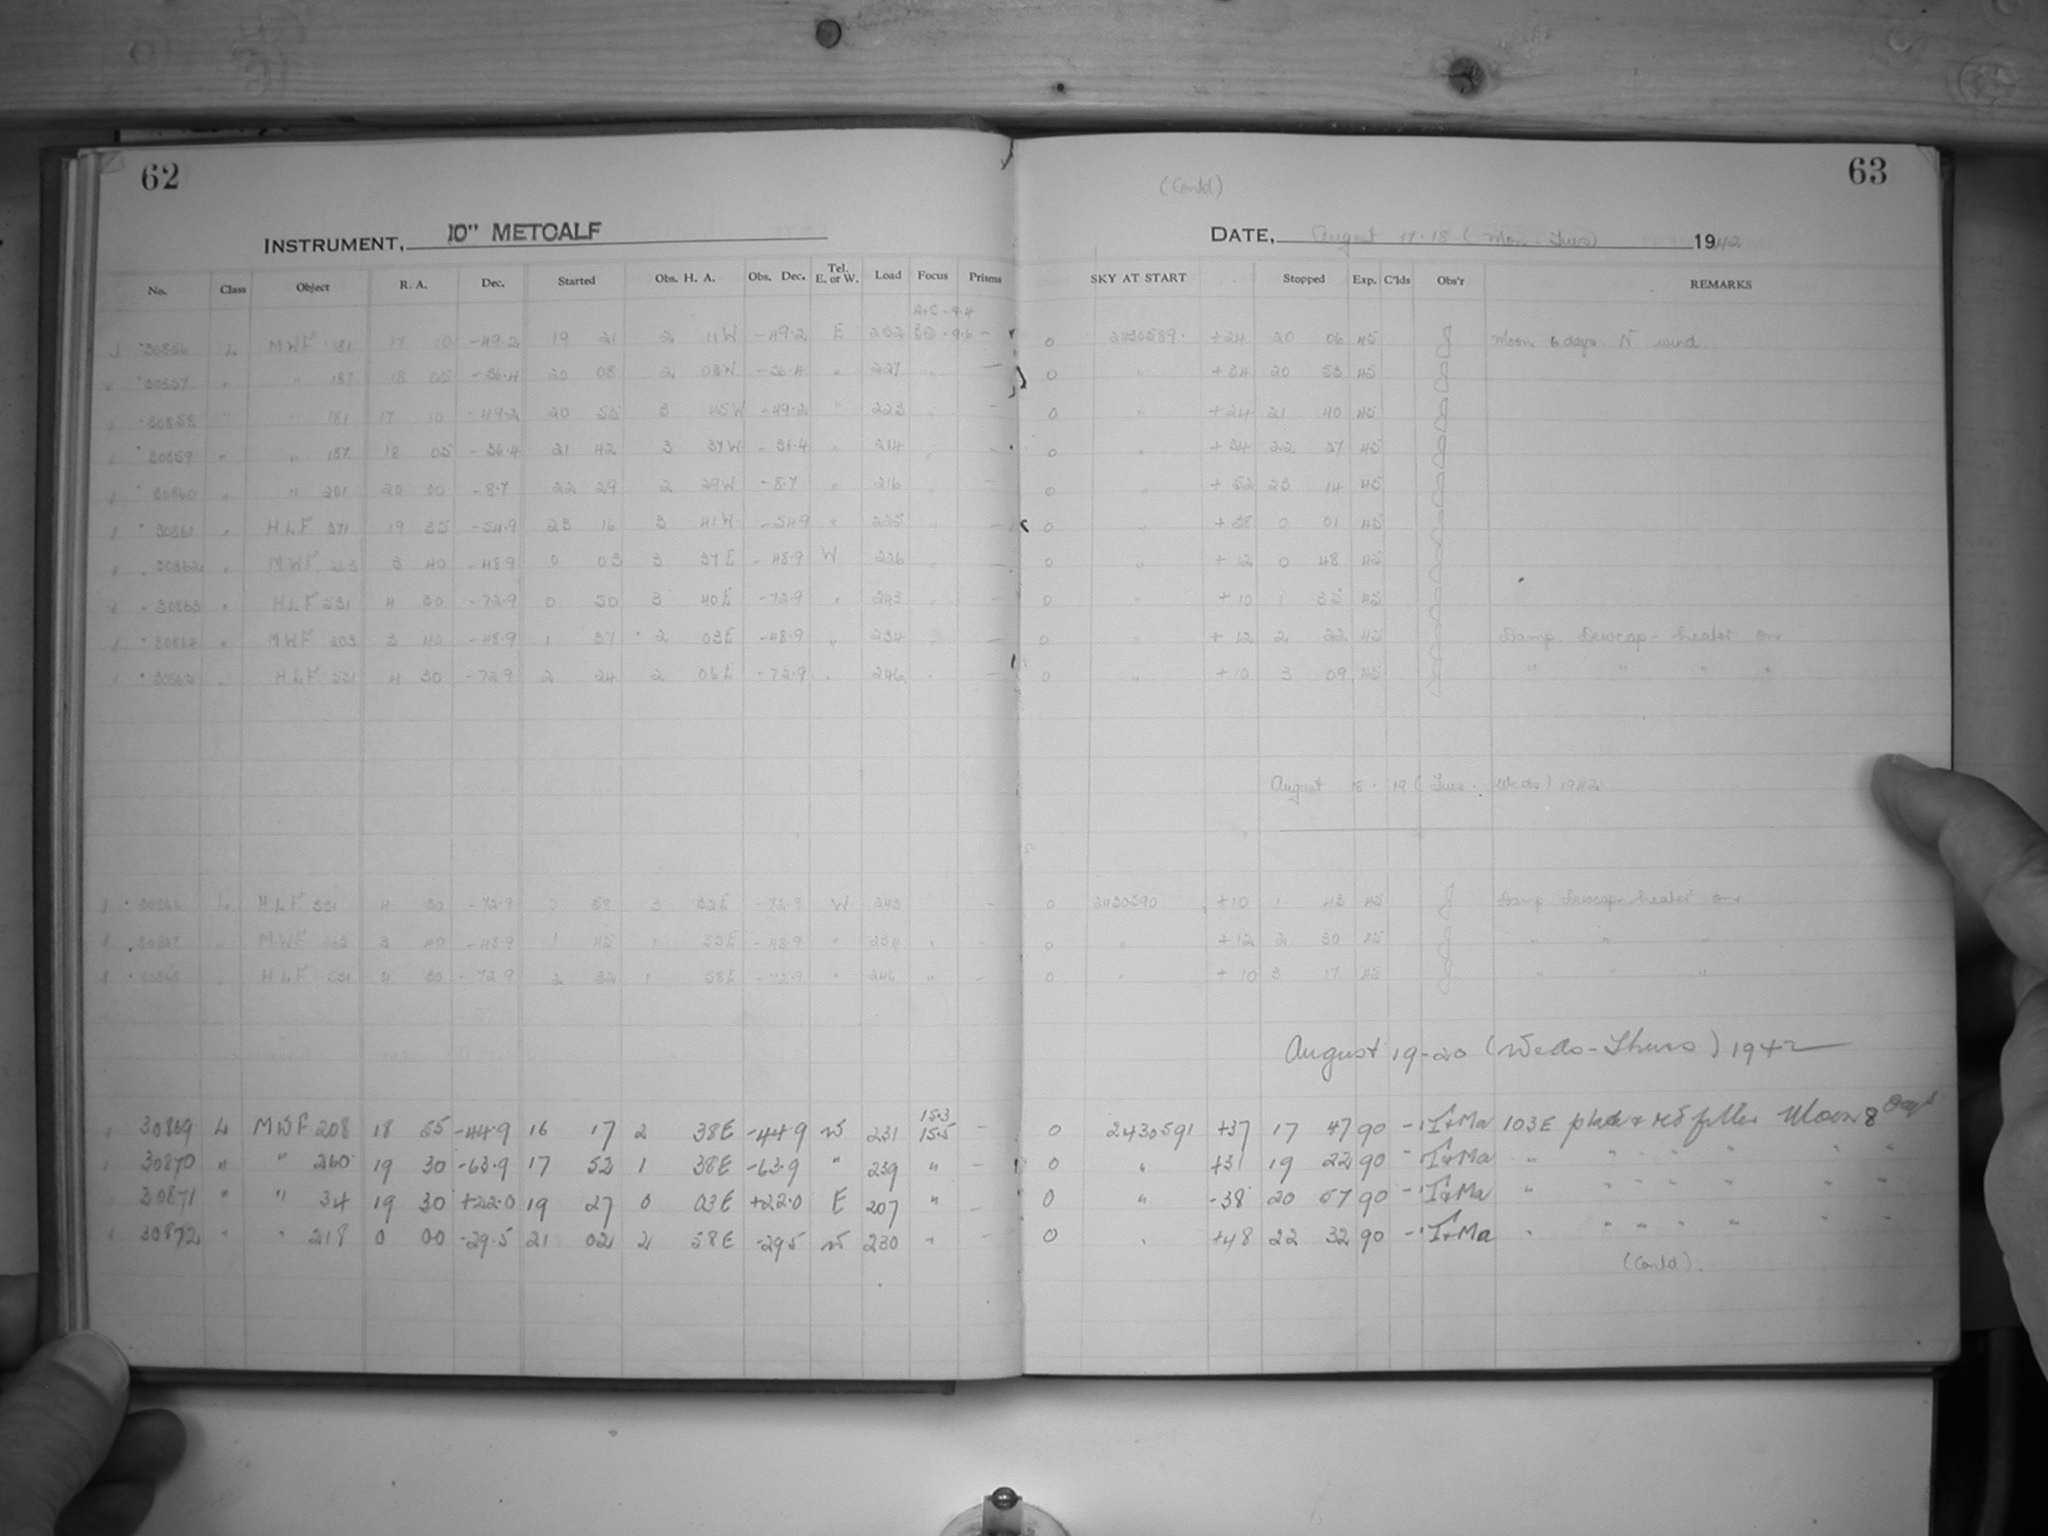 62
63
(Contd)
INSTRUMENT, 10" METCALF
DATE, August 17-18 (Mon-Tues) 1942
No. Class Object R. A. Dec. Started Obs. H. A. Obs. Dec. Tel. E. or W. Load Focus Prisms SKY AT START Stopped Exp. C'lds Obs'r REMARKS
30856 L MWF 181 17 10 -49.2 19 21 2 11W -49.2 E 232 - 0 2430589 +24 20 06 45 J Moon 6 days N wind
30857 " " 187 18 05 -36.4 20 08 2 03W -36.4 " 227 " - 0 " +34 20 53 45 J
30858 " " 181 17 10 -49.2 20 55 3 45W -49.2 " 223 " - 0 " +24 21 40 45 J
30859 " " 187 18 05 -36.4 21 42 3 37W -36.4 " 214 " - 0 " +34 22 27 45 J
30860 " " 201 20 00 -8.7 22 29 2 29W -8.7 " 216 " - 0 " +52 23 14 45 J
30861 " HLF 371 19 35 -54.9 23 16 3 41W -54.9 " 235 " - 0 " +38 0 01 45 J
30862 " MWF 3 40 -48.9 0 03 3 37E -48.9 W 226 " - 0 " +12 0 48 45 J
30863 " HLF 331 4 30 -72.9 0 50 3 40E -72.9 " 243 " - 0 " +10 1 35 45 J
30864 " MWF 3 40 -48.9 1 37 2 03E -48.9 " 234 - 0 " +12 2 22 45 J Damp. Dewcap-heater on
30865 HLF 331 4 30 -72.9 2 24 2 06E -72.9 " 246 " - 0 " +10 3 09 45 J " " " "
August 18-19 (Tues-Weds) 1942
30866 L HLF 331 4 30 -72.9 0 58 3 32E -72.9 W 243 - 0 2430590 +10 1 43 45 J Damp Dewcap-heater on
30867 MWF 3 40 -48.9 1 45 1 -48.9 " 234 " - 0 " +12 2 30 45 J " " "
30868 HLF 331 4 30 -72.9 2 32 1 58E -72.9 " 246 " - 0 " +10 3 17 45 J " " "
August 19-20 (Weds-Thurs) 1942
15.3
30869 L MWF 208 18 55 -44.9 16 17 2 38E -44.9 W 231 15.5 - 0 2430591 +37 17 47 90 - I+Ma 103E plate & red filter Moon 8 days
30870 " " 260 19 30 -63.9 17 52 1 38E -63.9 " 239 " - 0 " +31 19 22 90 - I+Ma " " " " " " "
30871 " " 34 19 30 +22.0 19 27 0 03E +22.0 E 207 " - 0 " -38 20 57 90 - I+Ma " " " " " " "
30872 " " 218 0 00 -29.5 21 02 2 58E -29.5 W 230 " - 0 " +48 22 32 90 - I+Ma " " " " " " "
(Contd).